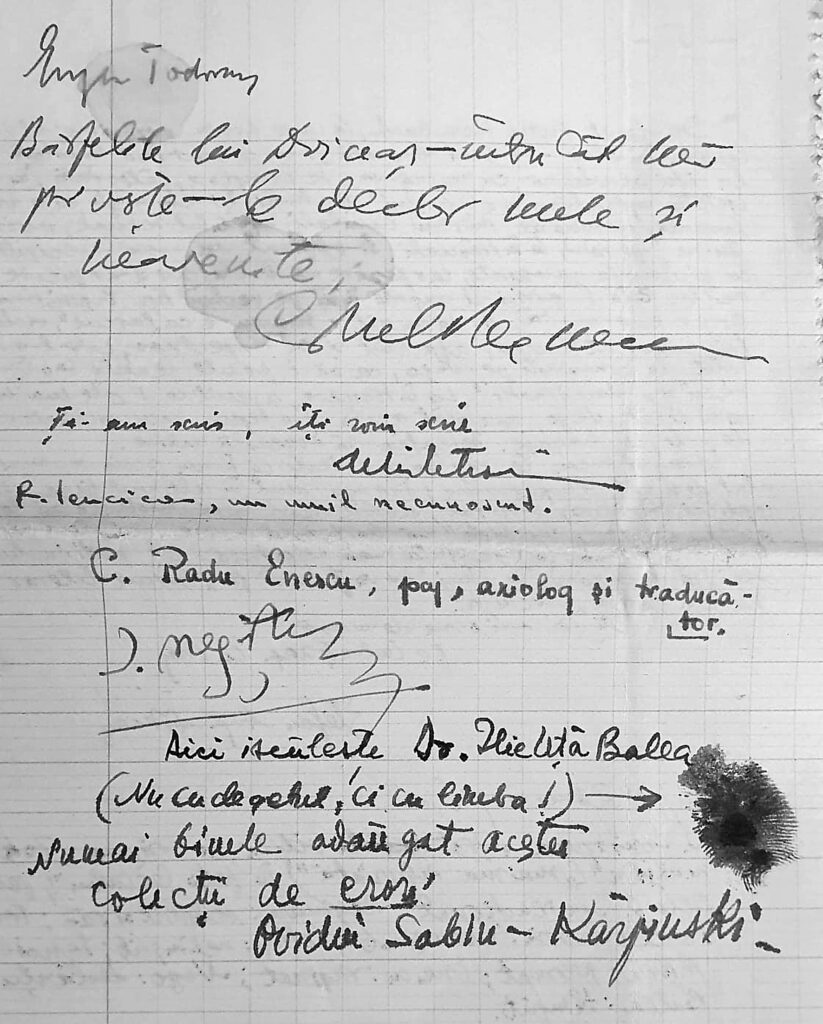 Eugen Todoran
Bârfelile lui – întru cât mă
privește – le declar nule și
neavenite,
Ți-am scris, îți voi scrie
, un umil necunoscut.
C. Radu Enescu, paj, axiolog și traducă-
tor.
I. Negoițescu
Aici iscălește Dr. Ilieuță Balea
(Nu cu degetul, ci cu limba!) →
Numai binele adăugat acestei
colecții de erori
Ovidiu Sabin – Kárpinski